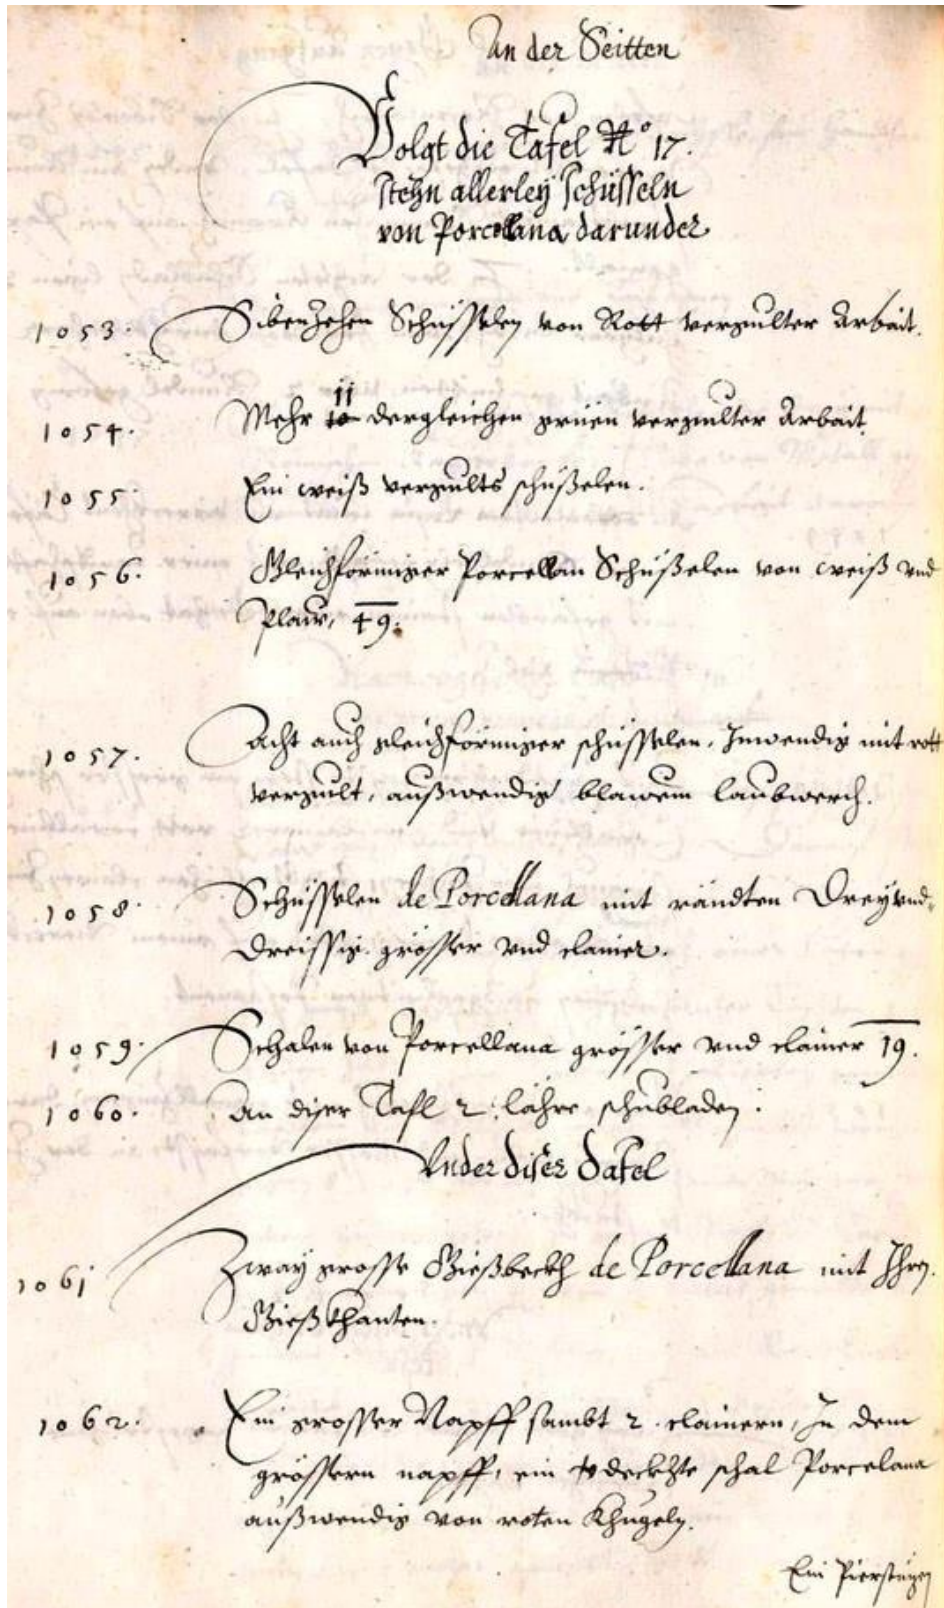 An der Seitten
Volgt die Tafel No 17.
stehn allerley schüsseln
von Porcellana darunder
1053. Sibenzehen Schüsselen von Rott vergulter Arbait.
1054. Mehr 10 11 dergleichen grüen vergulter Arbait.
1055. Ein weiß vergults schüßelen.
1056. Gleichförmiger Porcellan Schüßelen von weiß vnd
Plaw, 49.
1057. Acht auch gleichförmiger schüsselen, Inwendig mit rott
vergult, außwendig blawem laubwerch.
1058. Schüsselen de Porcellana mit rändten Dreyvnd-
dreissig. grösser vnd clainer.
1059. Schalen von Porcellana grösser vnd clainer 19.
1060. An diser Tafl 2 lähre schubladen:
Vnder diser Dafel
1061 Zway grosse Gießbeckh de Porcellana mit Ihren
Gießkhanten.
1062. Ein grosser Napff sambt 2. clainern, In dem
grössern napff, ein schal Porcelana
außwendig von roten Khugeln.
Ein